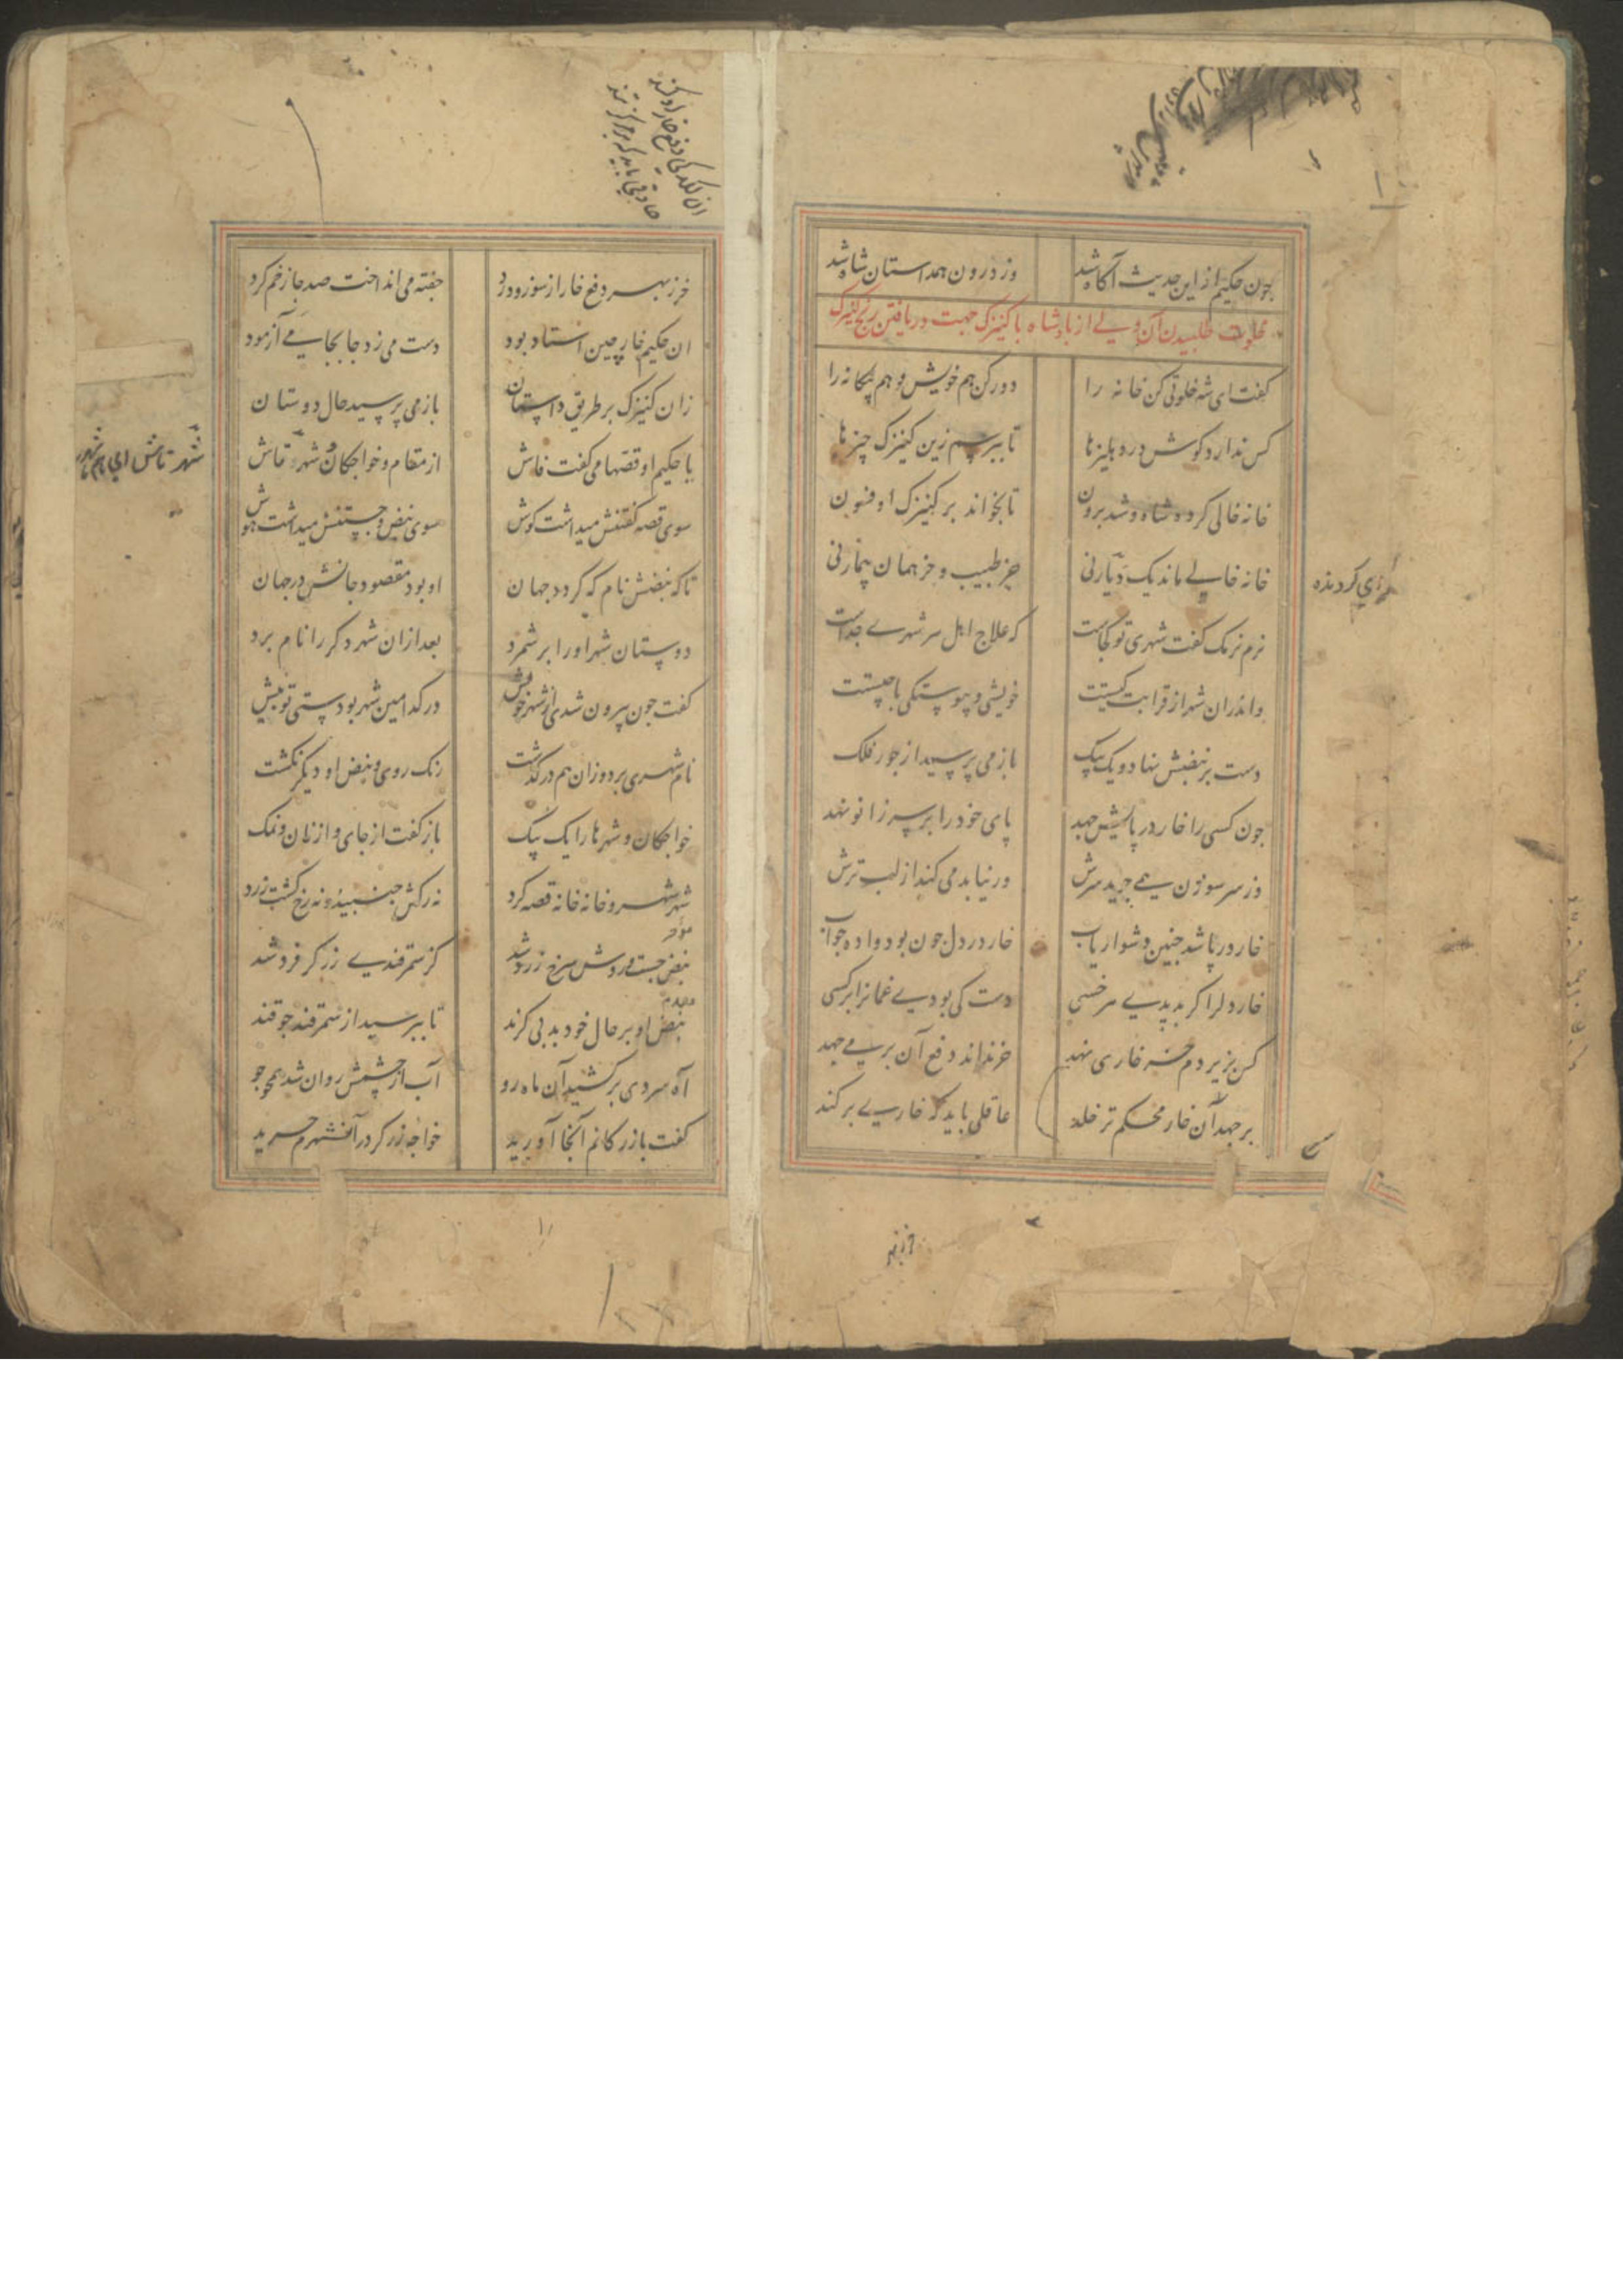 چون حکیم از این حدیث آگاه شد وز درون همداستان شاه شد
خلوت طلبیدن آن ولی از پادشاه با کنیزک جهت دریافتن رنج کنیزک
گفت ای شه خلوتی کن خانه را دور کن هم خویش و هم بیگانه را
کس ندارد گوش در دهلیزها تا بپرسم زین کنیزک چیزها
خانه خالی کرده شاه و شد برون تا بخواند بر کنیزک او فسون
خانه خالی ماند یک دیار نی جز طبیب و جز همان بیمار نی
نرم نرمک گفت شهری تو کجاست که علاج اهل هر شهری جداست
واندران شهر از قرابت کیستت خویشی و پیوستگی با چیستت
دست بر نبضش نهاد و یک بیک باز می پرسید از جور فلک
جون کسی را خار در پایش جهد پای خود را بر سر زانو نهد
وز سر سوزن همی جوید سرش ور نیابد می کند از لب ترش
خار در پا شد چنین دشوار یاب خار در دل چون بود واده جواب
خار دلرا گر بدیدی هر خسی دست کی بودی غمانرا بر کسی
کس بزیر دم خر خاری نهد خر نداند دفع آن بر می جهد
بر جهد آن خار محکم تر خلد عاقلی باید که خاری بر کند
خر ز بهر دفع خار از سوز و درد جفته می انداخت صد جا زخم کرد
ان حکیم خارچین استاد بود دست می زد جا بجا می آزمود
زان کنیزک بر طریق داستان باز می پرسید حال دوستان
با حکیم او قصها می گفت فاش از مقام و خواجگان و شهر تاش
سوی قصه گفتنش میداشت گوش سوی نبض و جستنش میداشت هوش
تا که نبضش نام که گردد جهان او بود مقصود جانش در جهان
دوستان شهر او را بر شمرد بعد ازان شهر دگر را نام برد
گفت چون بیرون شدی از شهر خویش در کدامین شهر بودستی تو بیش
نام شهری برد و زان هم در گذشت رنک روی و نبض او دیگر نگشت
خواجگان و شهرها را یک بیک باز گفت از جای و از نان و نمک
شهر شهر و خانه خانه قصه کرد نه رگش جنبید و نه رخ گشت زرد
نبض او بر حال خود بد بی گزند تا بپرسید از سمرقند چو قند
نبض جست و روش سرخ زرد شد کز سمرقندی زرگر فرد شد
آه سردی برکشید آن ماه رو آب از چشمش روان شد همچو جو
گفت بازرگانم آنجا آورید خواجه زرگر در آن شهرم خرید
شهر تاش ای هم شهر